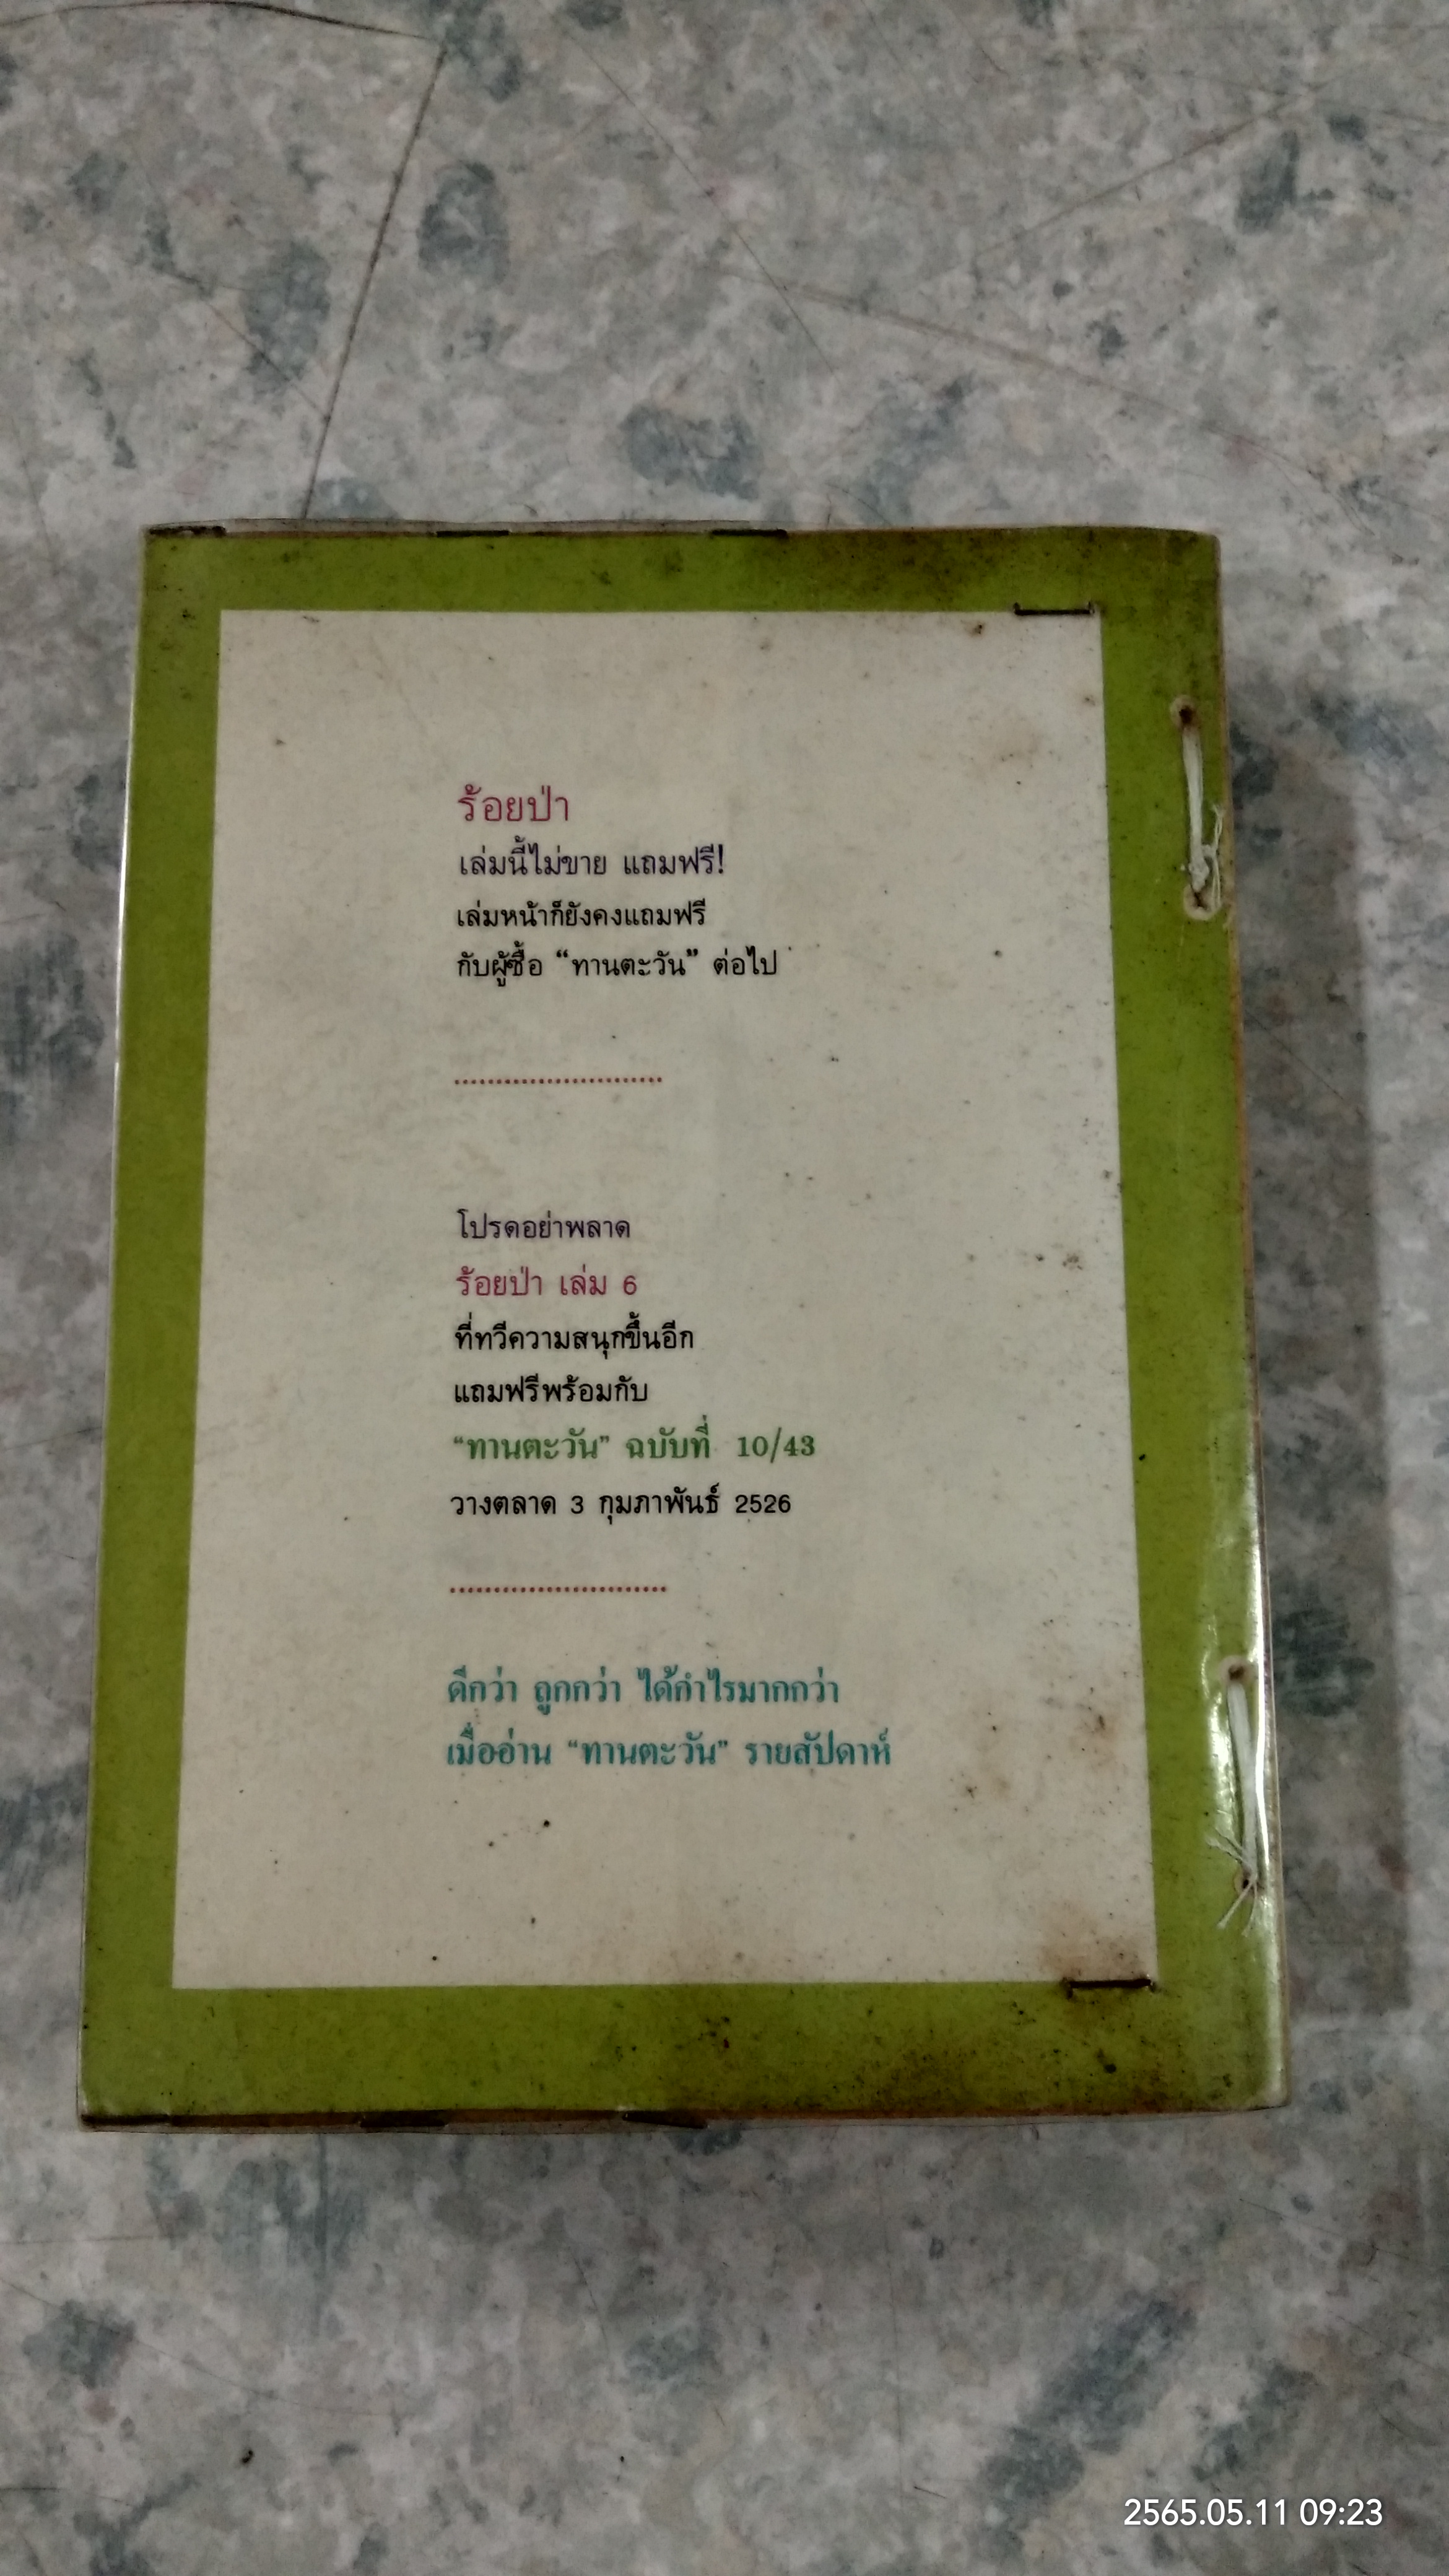 ร้อยป่า
เล่มนี้ไม่ขาย แถมฟรี!
เล่มหน้าก็ยังคงแถมฟรี
กับผู้ซื้อ “ทานตะวัน” ต่อไป
.........................
โปรดอย่าพลาด
ร้อยป่า เล่ม 6
ที่ทวีความสนุกขึ้นอีก
แถมฟรีพร้อมกับ
“ทานตะวัน” ฉบับที่ 10/43
วางตลาด 3 กุมภาพันธ์ 2526
.........................
ดีกว่า ถูกกว่า ได้กำไรมากกว่า
เมื่ออ่าน “ทานตะวัน” รายสัปดาห์
2565.05.11 09:23